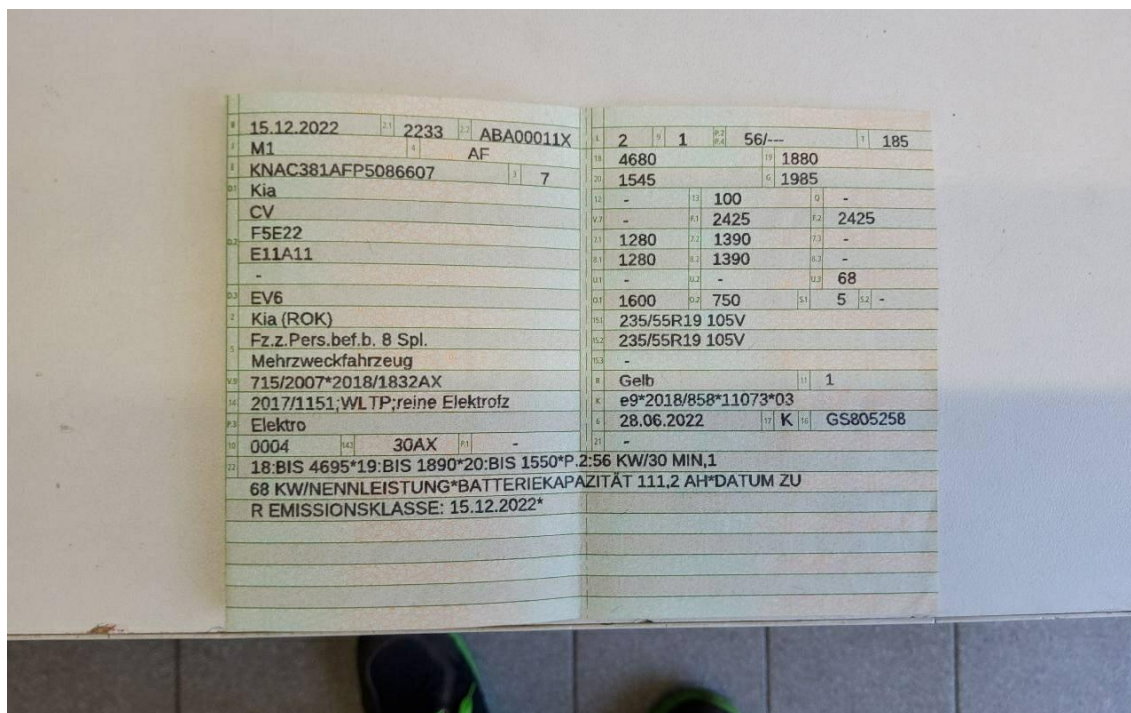 B 15.12.2022 2.1 2233 2.2 ABA00011X
J M1 4 AF
E KNAC381AFP5086607 3 7
D.1 Kia
CV
D.2 F5E22
E11A11
-
D.3 EV6
2 Kia (ROK)
5 Fz.z.Pers.bef.b. 8 Spl.
Mehrzweckfahrzeug
V.9 715/2007*2018/1832AX
14 2017/1151;WLTP;reine Elektrofz
P.3 Elektro
10 0004 14.1 30AX P.1 -
L 2 9 1 P.2 P.4 56/--- T 185
18 4680 19 1880
20 1545 G 1985
12 - 13 100 Q -
V.7 - F.1 2425 F.2 2425
7.1 1280 7.2 1390 7.3 -
8.1 1280 8.2 1390 8.3 -
U.1 - U.2 - U.3 68
O.1 1600 O.2 750 S.1 5 S.2 -
15.1 235/55R19 105V
15.2 235/55R19 105V
15.3 -
R Gelb 11 1
K e9*2018/858*11073*03
6 28.06.2022 17 K 16 GS805258
21 -
22 18:BIS 4695*19:BIS 1890*20:BIS 1550*P.2:56 KW/30 MIN,1
68 KW/NENNLEISTUNG*BATTERIEKAPAZITÄT 111,2 AH*DATUM ZU
R EMISSIONSKLASSE: 15.12.2022*